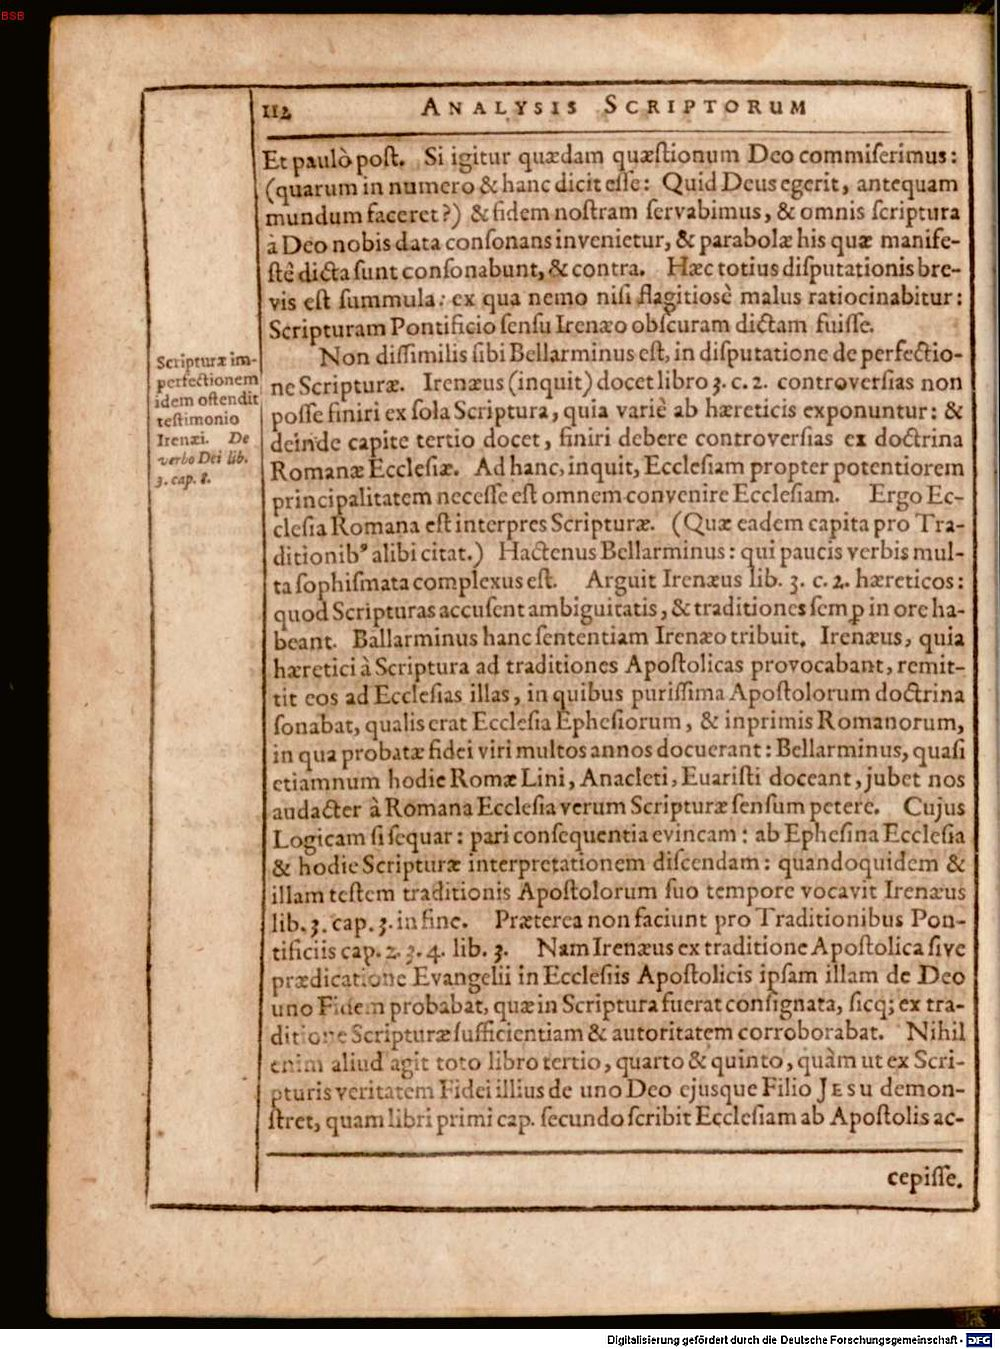 BSB
112 ANALYSIS SCRIPTORUM
Et paulò post. Si igitur quædam quæstionum Deo commiserimus:
(quarum in numero & hanc dicit esse: Quid Deus egerit, antequam
mundum faceret?) & fidem nostram servabimus, & omnis scriptura
à Deo nobis data consonans invenietur, & parabolæ his quæ manife-
stè dicta sunt consonabunt, & contra. Hæc totius disputationis bre-
vis est summula: ex qua nemo nisi flagitiosè malus ratiocinabitur:
Scripturam Pontificio sensu Irenæo obscuram dictam fuisse.
Scripturæ im-
perfectionem
idem ostendit
testimonio
Irenæi. De
verbo Dei lib.
3. cap. 8.
Non dissimilis sibi Bellarminus est, in disputatione de perfectio-
ne Scripturæ. Irenæus (inquit) docet libro 3. c. 2. controversias non
posse finiri ex sola Scriptura, quia variè ab hæreticis exponuntur: &
deinde capite tertio docet, finiri debere controversias ex doctrina
Romanæ Ecclesiæ. Ad hanc, inquit, Ecclesiam propter potentiorem
principalitatem necesse est omnem convenire Ecclesiam. Ergo Ec-
clesia Romana est interpres Scripturæ. (Quæ eadem capita pro Tra-
ditionibꝰ alibi citat.) Hactenus Bellarminus: qui paucis verbis mul-
ta sophismata complexus est. Arguit Irenæus lib. 3. c. 2. hæreticos:
quod Scripturas accusent ambiguitatis, & traditiones semꝑ in ore ha-
beant. Ballarminus hanc sententiam Irenæo tribuit. Irenæus, quia
hæretici à Scriptura ad traditiones Apostolicas provocabant, remit-
tit eos ad Ecclesias illas, in quibus purissima Apostolorum doctrina
sonabat, qualis erat Ecclesia Ephesiorum, & inprimis Romanorum,
in qua probatæ fidei viri multos annos docuerant: Bellarminus, quasi
etiamnum hodie Romæ Lini, Anacleti, Euaristi doceant, jubet nos
audacter à Romana Ecclesia verum Scripturæ sensum petere. Cujus
Logicam si sequar: pari consequentia evincam: ab Ephesina Ecclesia
& hodie Scripturæ interpretationem discendam: quandoquidem &
illam testem traditionis Apostolorum suo tempore vocavit Irenæus
lib. 3. cap. 3. in fine. Præterea non faciunt pro Traditionibus Pon-
tificiis cap. 2. 3. 4. lib. 3. Nam Irenæus ex traditione Apostolica sive
prædicatione Evangelii in Ecclesiis Apostolicis ipsam illam de Deo
uno Fidem probabat, quæ in Scriptura fuerat consignata, sicq; ex tra-
ditione Scripturæ sufficientiam & autoritatem corroborabat. Nihil
enim aliud agit toto libro tertio, quarto & quinto, quàm ut ex Scri-
pturis veritatem Fidei illius de uno Deo ejusque Filio JESU demon-
stret, quam libri primi cap. secundo scribit Ecclesiam ab Apostolis ac-
cepisse.
Digitalisierung gefördert durch die Deutsche Forschungsgemeinschaft - DFG